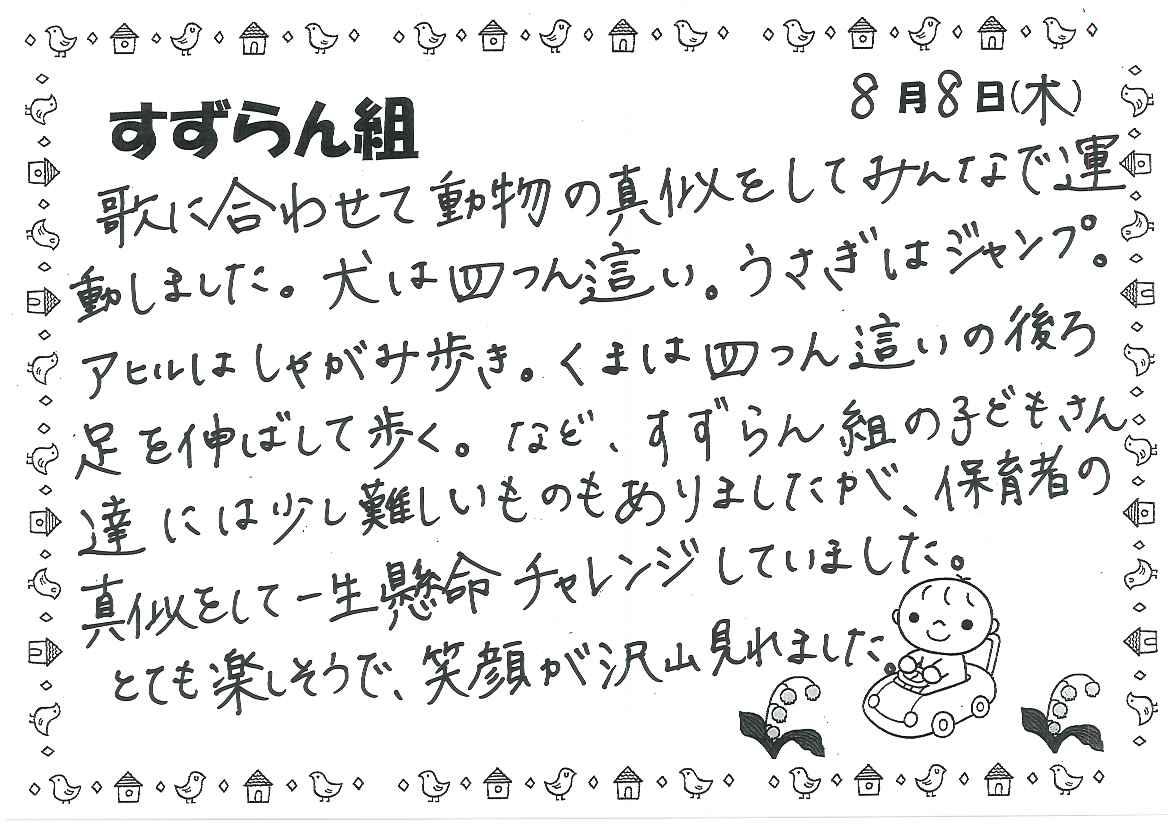 8月8日(木)
すずらん組
歌に合わせて動物の真似をしてみんなで運
動しました。犬は四つん這い。うさぎはジャンプ。
アヒルはしゃがみ歩き。くまは四つん這いの後ろ
足を伸ばして歩く。など、すずらん組の子どもさん
達には少し難しいものもありましたが、保育者の
真似をして一生懸命チャレンジしていました。
とても楽しそうで、笑顔が沢山見れました。